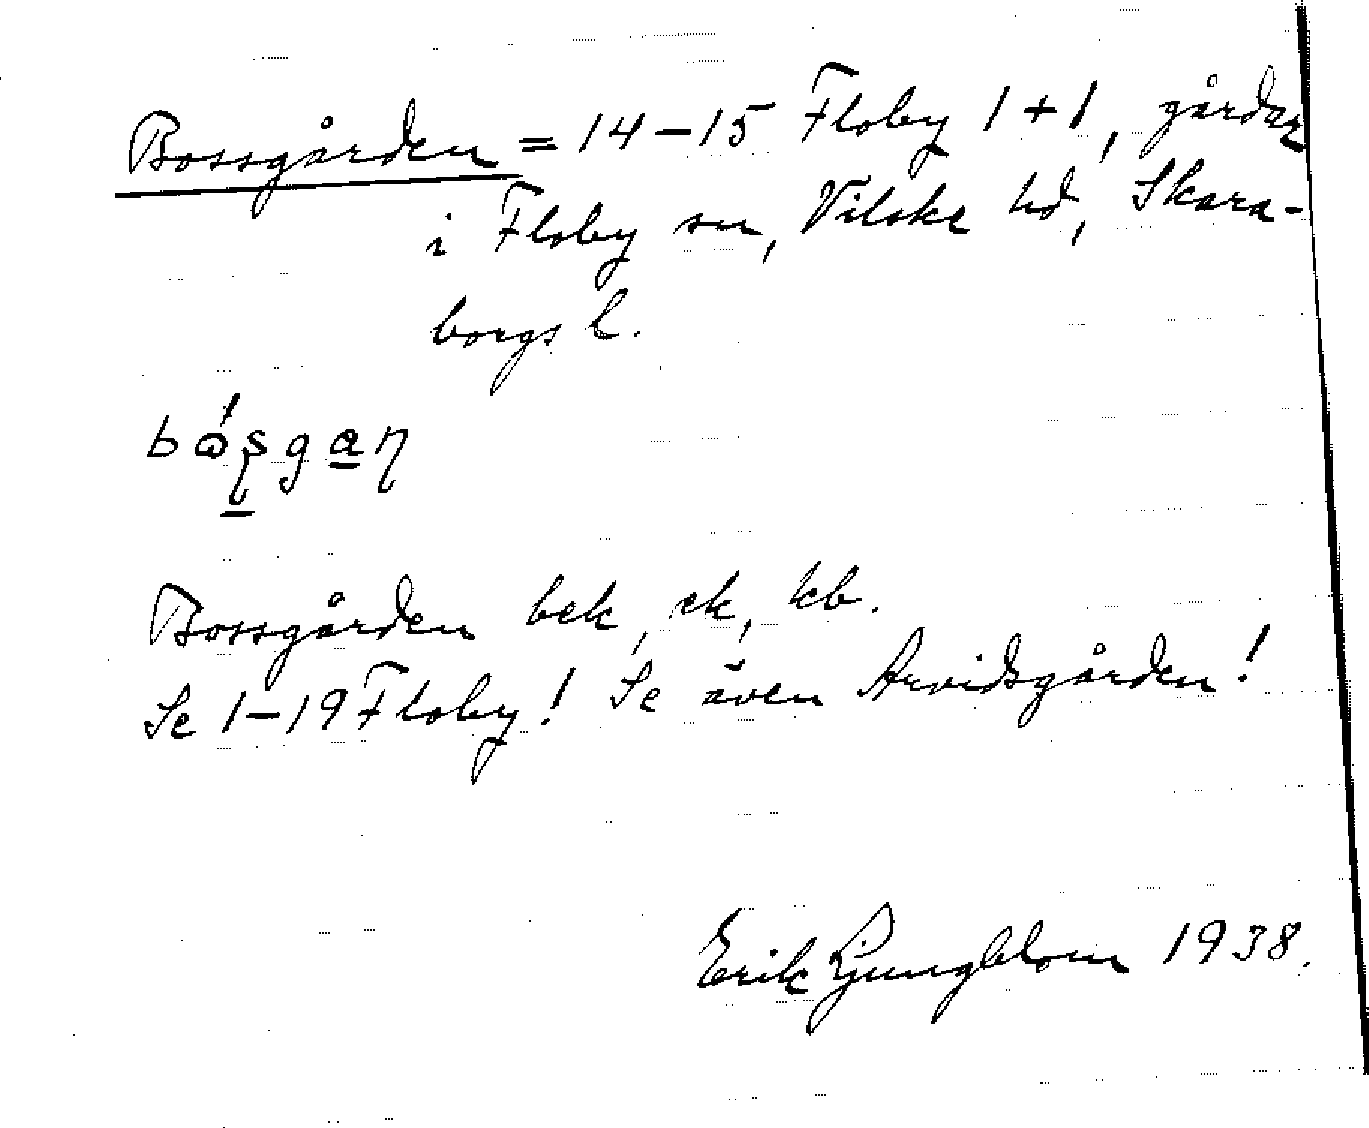 Bossgården = 14–15 Floby 1+1, gårdar
i Floby sn, Vilske hd, Skara-
borgs l.
Bossgården bek, ek, kb.
Se 1–19 Floby! Se även Arvidsgården!
Erik Ljungblom 1938.